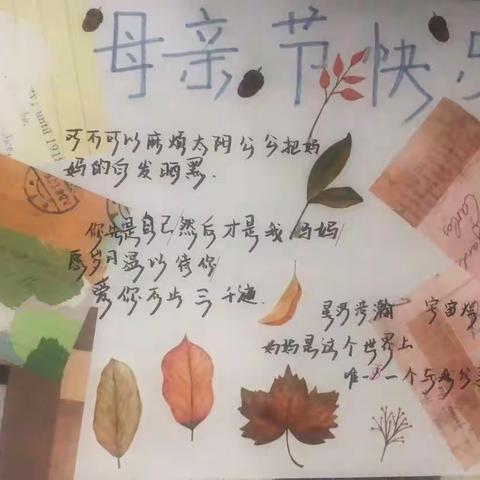 母亲节快乐
可不可以麻烦太阳公公把妈
妈的白发晒黑.
你先是自己/然后才是我妈妈/
愿岁月温以待你/
爱你不止三千遍.
星河浩瀚 宇宙
妈妈是这个世界上
唯一一个与我分享
until 1911
Carlos